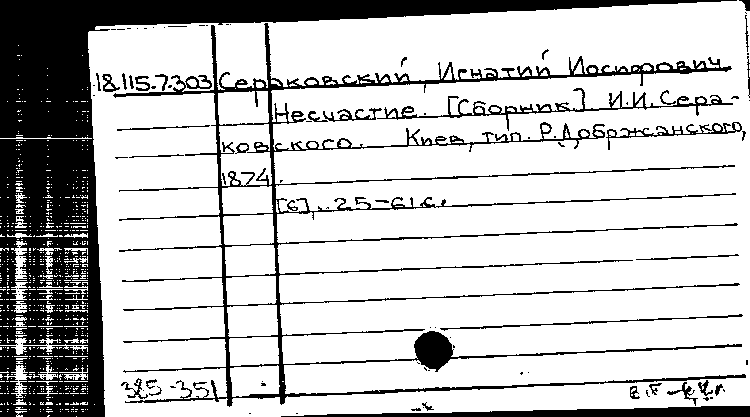 18.115.7.303 Сераковский, Игнатий Иосифович.
Несчастие. [Сборник] И.И. Сера-
ковского. Киев, тип. Р. Добржанского,
1874.
[6], 25-61 с.
385-351